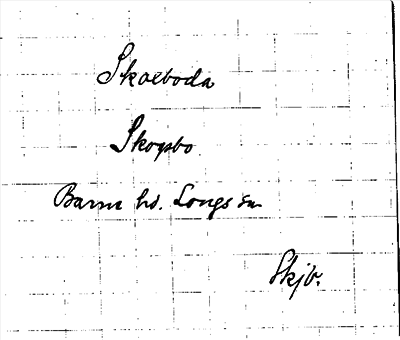 Skaeboda
Skogsbo
Barne hd. Longs sn
Skjb.